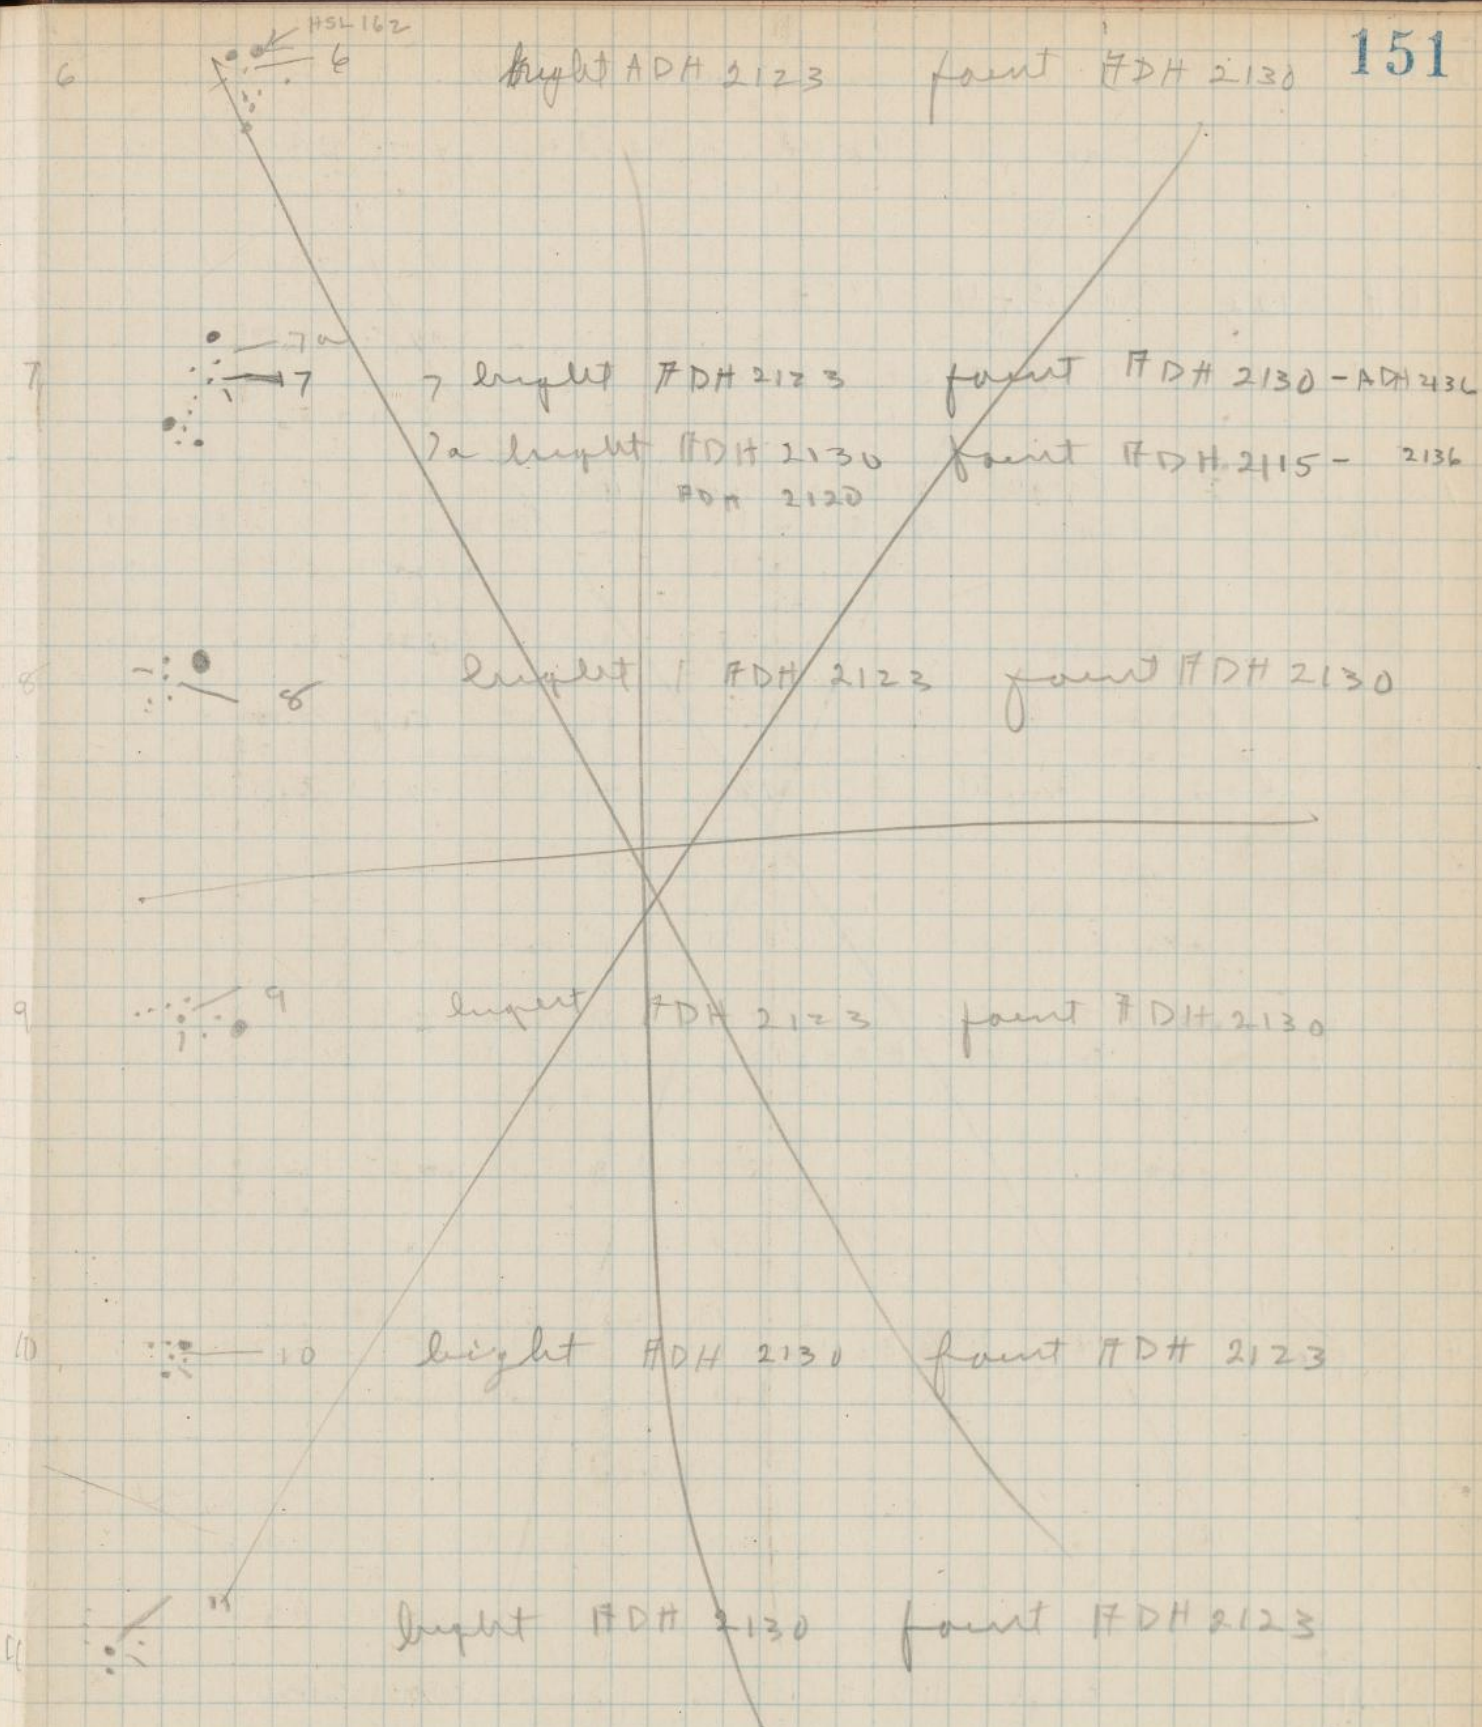 151
HSL 162
6 6 bright ADH 2123 faint ADH 2130
7a
7 7 7 bright ADH 2123 faint ADH 2130 - ADH 2136
7a bright ADH 2130 faint ADH 2115 - 2136
ADH 2120
8 8 bright ADH 2123 faint ADH 2130
9 9 bright ADH 2123 faint ADH 2130
10 10 bright ADH 2130 faint ADH 2123
11 11 bright ADH 2130 faint ADH 2123